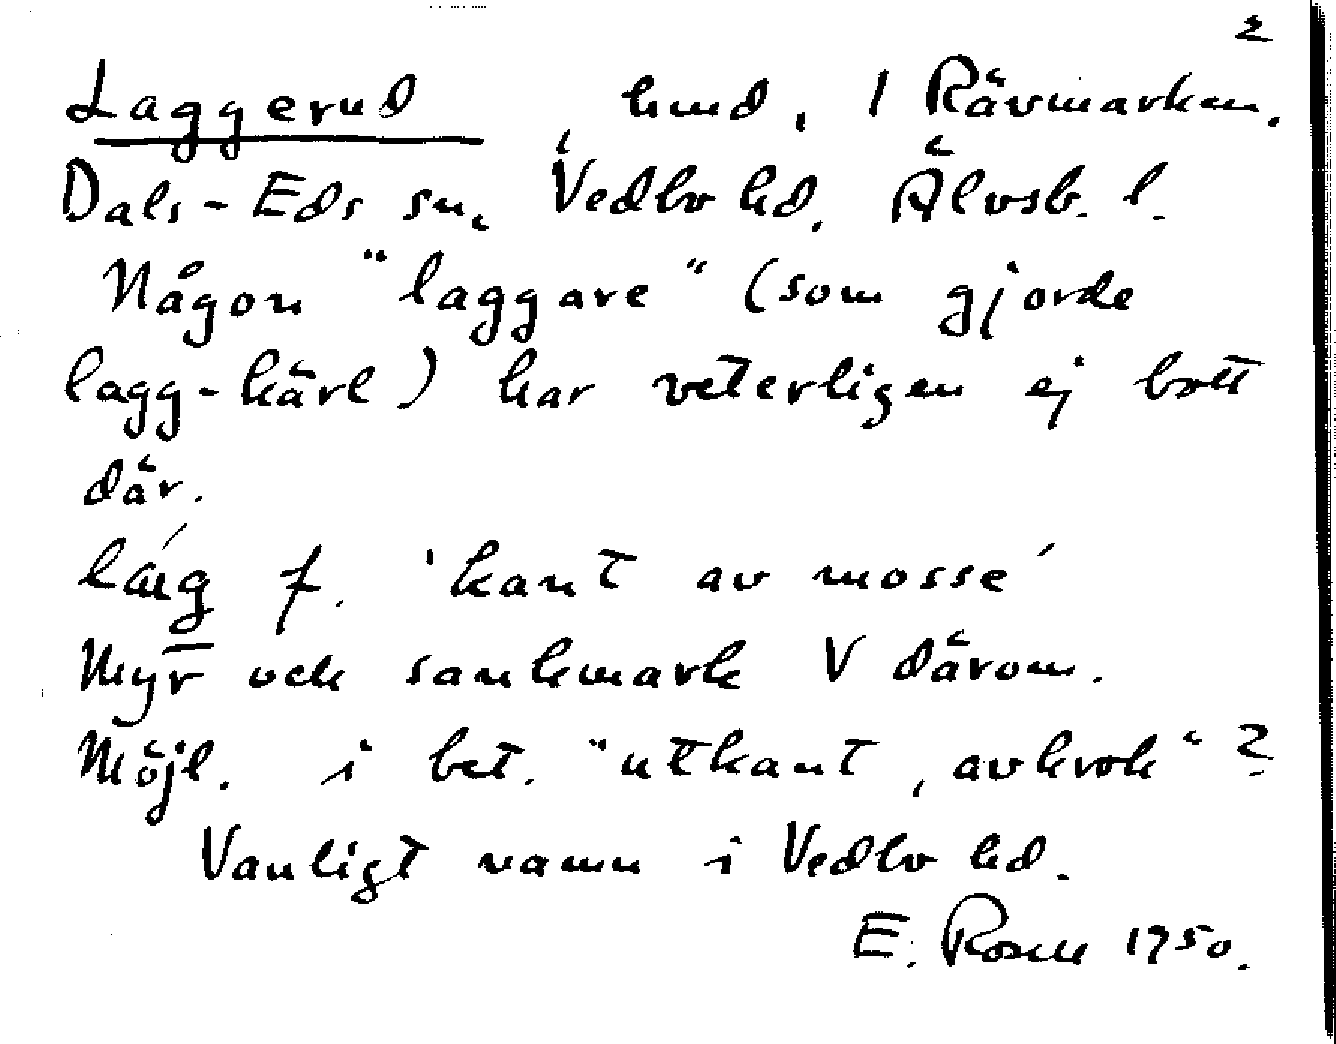 2
Laggerud, hmd, 1 Rävmarken.
Dals-Eds sn, Vedbo hd. Älvsb. l.
Någon "laggare" (som gjorde
lagg-kärl) har veterligen ej bott
där.
f. 'kant av mosse'
Myr och sankmark V därom.
Möjl. i bet. "utkant, avkrok"?
Vanligt namn i Vedbo hd.
E. Rosell 1950.